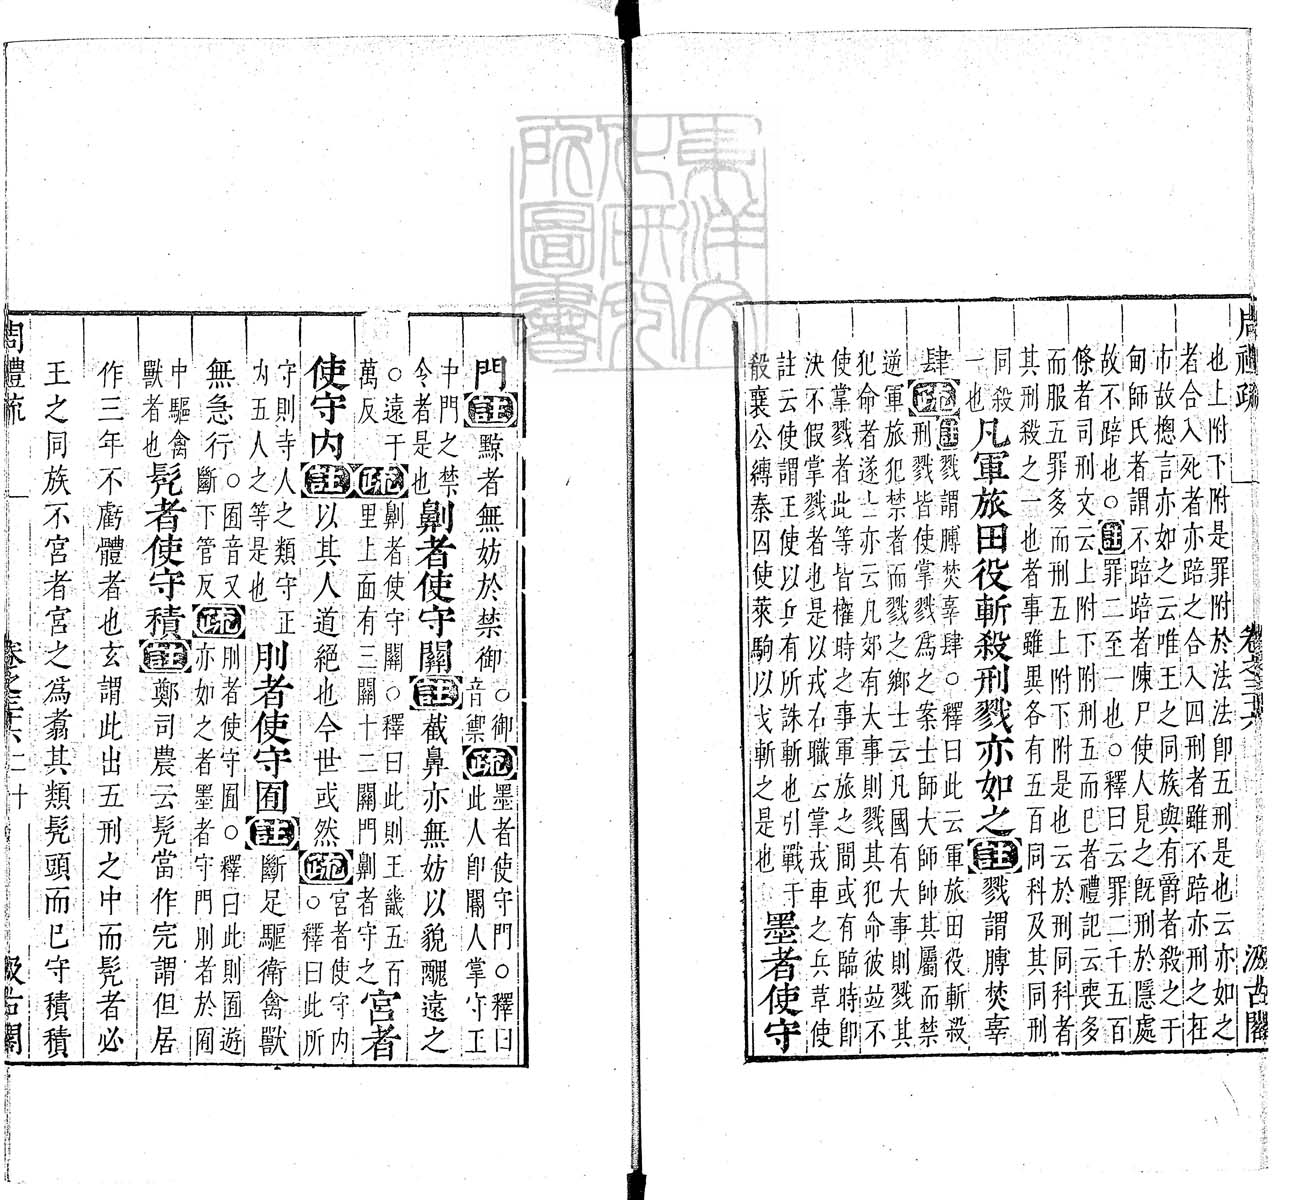 周禮疏
卷之三十六
汲古閣
也上附下附是罪附於法法卽五刑是也云亦如之
者合入死者亦踣之合入四刑者雖不踣亦刑之在
市故摠言亦如之云唯王之同族與有爵者殺之于
甸師氏者謂不踣踣者陳尸使人見之旣刑於隱處
故不踣也○註罪二至一也○釋曰云罪二千五百
條者司刑文云上附下附刑五而已者禮記云喪多
而服五罪多而刑五上附下附是也云於刑同科者
其刑殺之一也者事雖異各有五百同科及其同刑
同殺
一也
凡軍旅田役斬殺刑戮亦如之註戮謂膊焚辜
肆疏
註戮謂膊焚辜肆○釋曰此云軍旅田役斬殺
刑戮皆使掌戮爲之案士師大師帥其屬而禁
逆軍旅犯禁者而戮之鄉士云凡國有大事則戮其
犯命者遂士亦云凡郊有大事則戮其犯命彼並不
使掌戮者此等皆權時之事軍旅之間或有臨時卽
決不假掌戮者也是以戎右職云掌戎車之兵革使
註云使謂王使以兵有所誅斬也引戰于
殽襄公縛秦囚使萊駒以戈斬之是也
墨者使守
門註黥者無妨於禁御○御
音禦
疏墨者使守門○釋曰
此人卽閽人掌守王
中門之禁
今者是也
劓者使守關註截鼻亦無妨以貌醜遠之
○遠于
萬反
疏劓者使守關○釋曰此則王畿五百
里上面有三關十二關門劓者守之
宮者
使守內註以其人道絕也今世或然疏宮者使守內
○釋曰此所
守則寺人之類守正
內五人之等是也
刖者使守囿註斷足驅衛禽獸
無急行○囿音又
斷下管反
疏刖者使守囿○釋曰此則囿遊
亦如之者墨者守門刖者於囿
中驅禽
獸者也
髡者使守積註鄭司農云髡當作完謂但居
作三年不虧體者也玄謂此出五刑之中而髡者必
王之同族不宮者宮之爲翦其類髡頭而已守積積
周禮疏
卷之三十六
二十
汲古閣
東洋文
化研究
所圖書